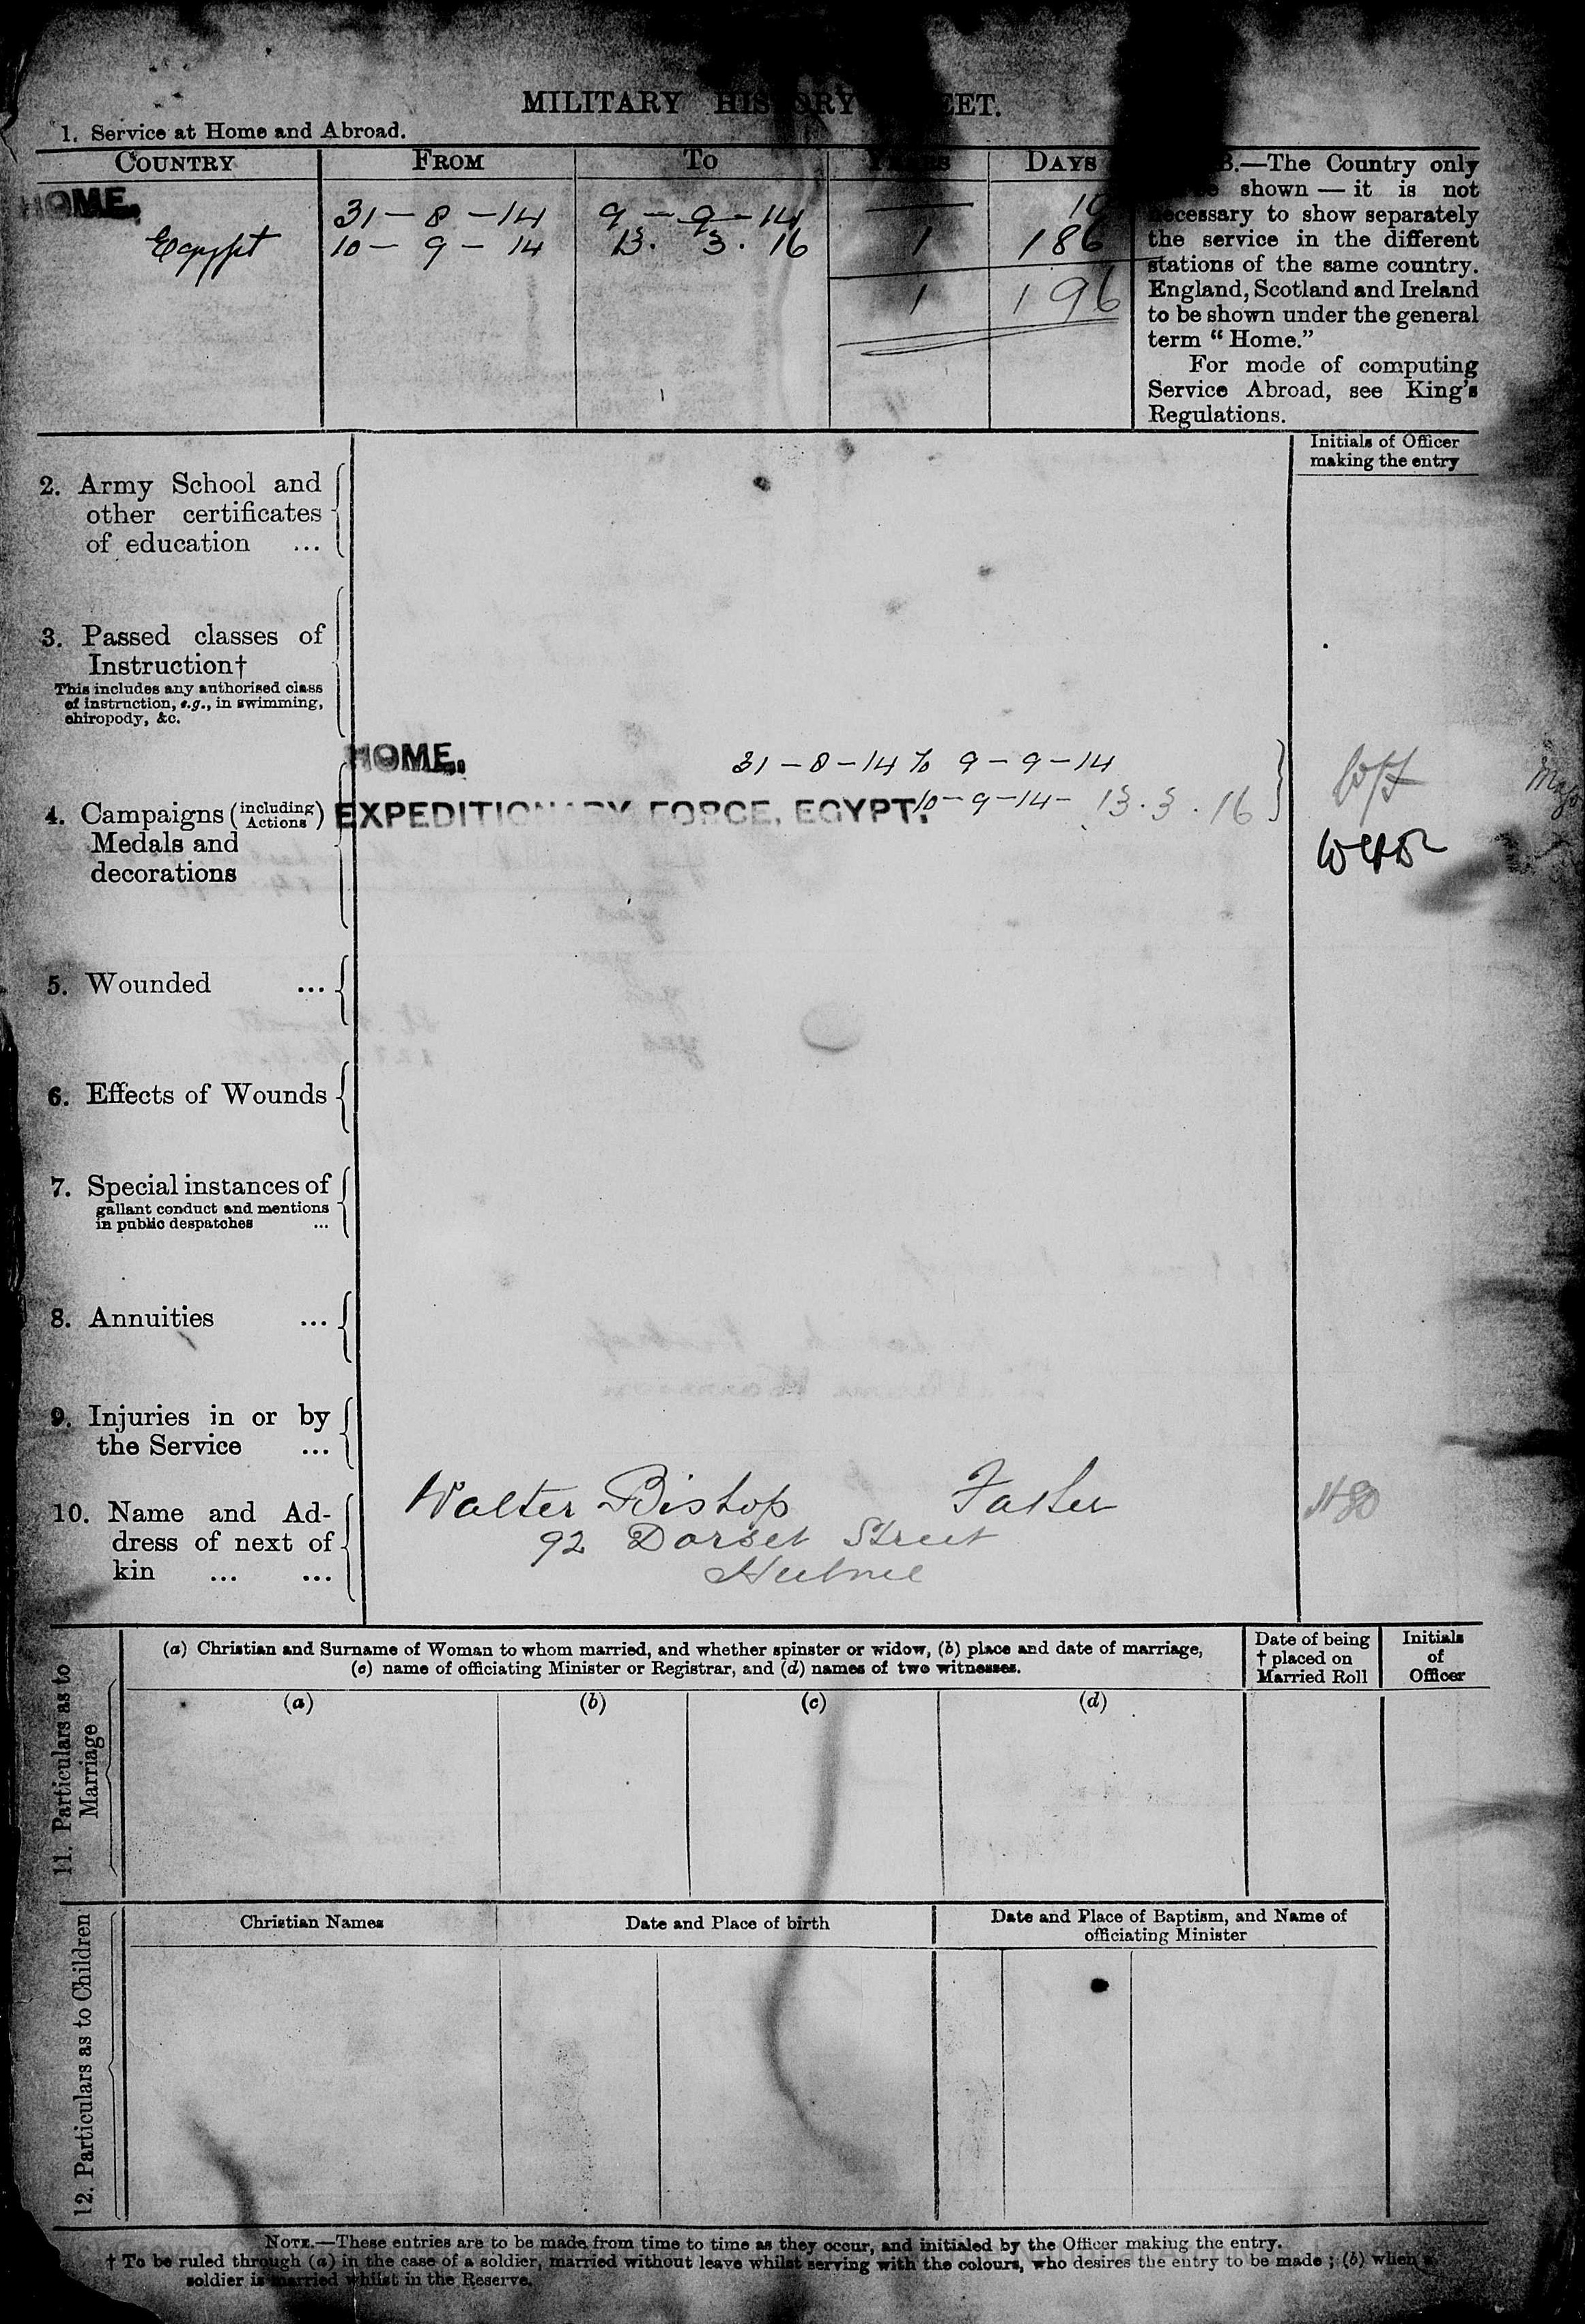 MILITARY HISTORY SHEET.
1. Service at Home and Abroad.
COUNTRY FROM TO YEARS DAYS
HOME. 31 - 8 - 14 9 - 9 - 14 — 10
Egypt 10 - 9 - 14 13. 3. 16 1 186
1 196
B.—The Country only
shown — it is not
necessary to show separately
the service in the different
stations of the same country.
England, Scotland and Ireland
to be shown under the general
term “ Home.”
For mode of computing
Service Abroad, see King's
Regulations.
Initials of Officer
making the entry
2. Army School and
other certificates
of education ...
3. Passed classes of
Instruction†
This includes any authorised class
of instruction, e.g., in swimming,
chiropody, &c.
HOME. 31 - 8 - 14 to 9 - 9 - 14
4. Campaigns (including Actions)
Medals and
decorations
EXPEDITIONARY FORCE, EGYPT. 10 - 9 - 14 - 13. 3. 16
5. Wounded ...
6. Effects of Wounds
7. Special instances of
gallant conduct and mentions
in public despatches ...
8. Annuities ...
9. Injuries in or by
the Service ...
10. Name and Ad-
dress of next of
kin ... ...
Walter Bishop Father
92 Dorset Street
Hulme
11. Particulars as to
Marriage
(a) Christian and Surname of Woman to whom married, and whether spinster or widow, (b) place and date of marriage,
(c) name of officiating Minister or Registrar, and (d) names of two witnesses.
Date of being
† placed on
Married Roll
Initials
of
Officer
(a) (b) (c) (d)
12. Particulars as to Children
Christian Names
Date and Place of birth
Date and Place of Baptism, and Name of
officiating Minister
NOTE.—These entries are to be made from time to time as they occur, and initialed by the Officer making the entry.
† To be ruled through (a) in the case of a soldier, married without leave whilst serving with the colours, who desires the entry to be made ; (b) when a
soldier is married whilst in the Reserve.